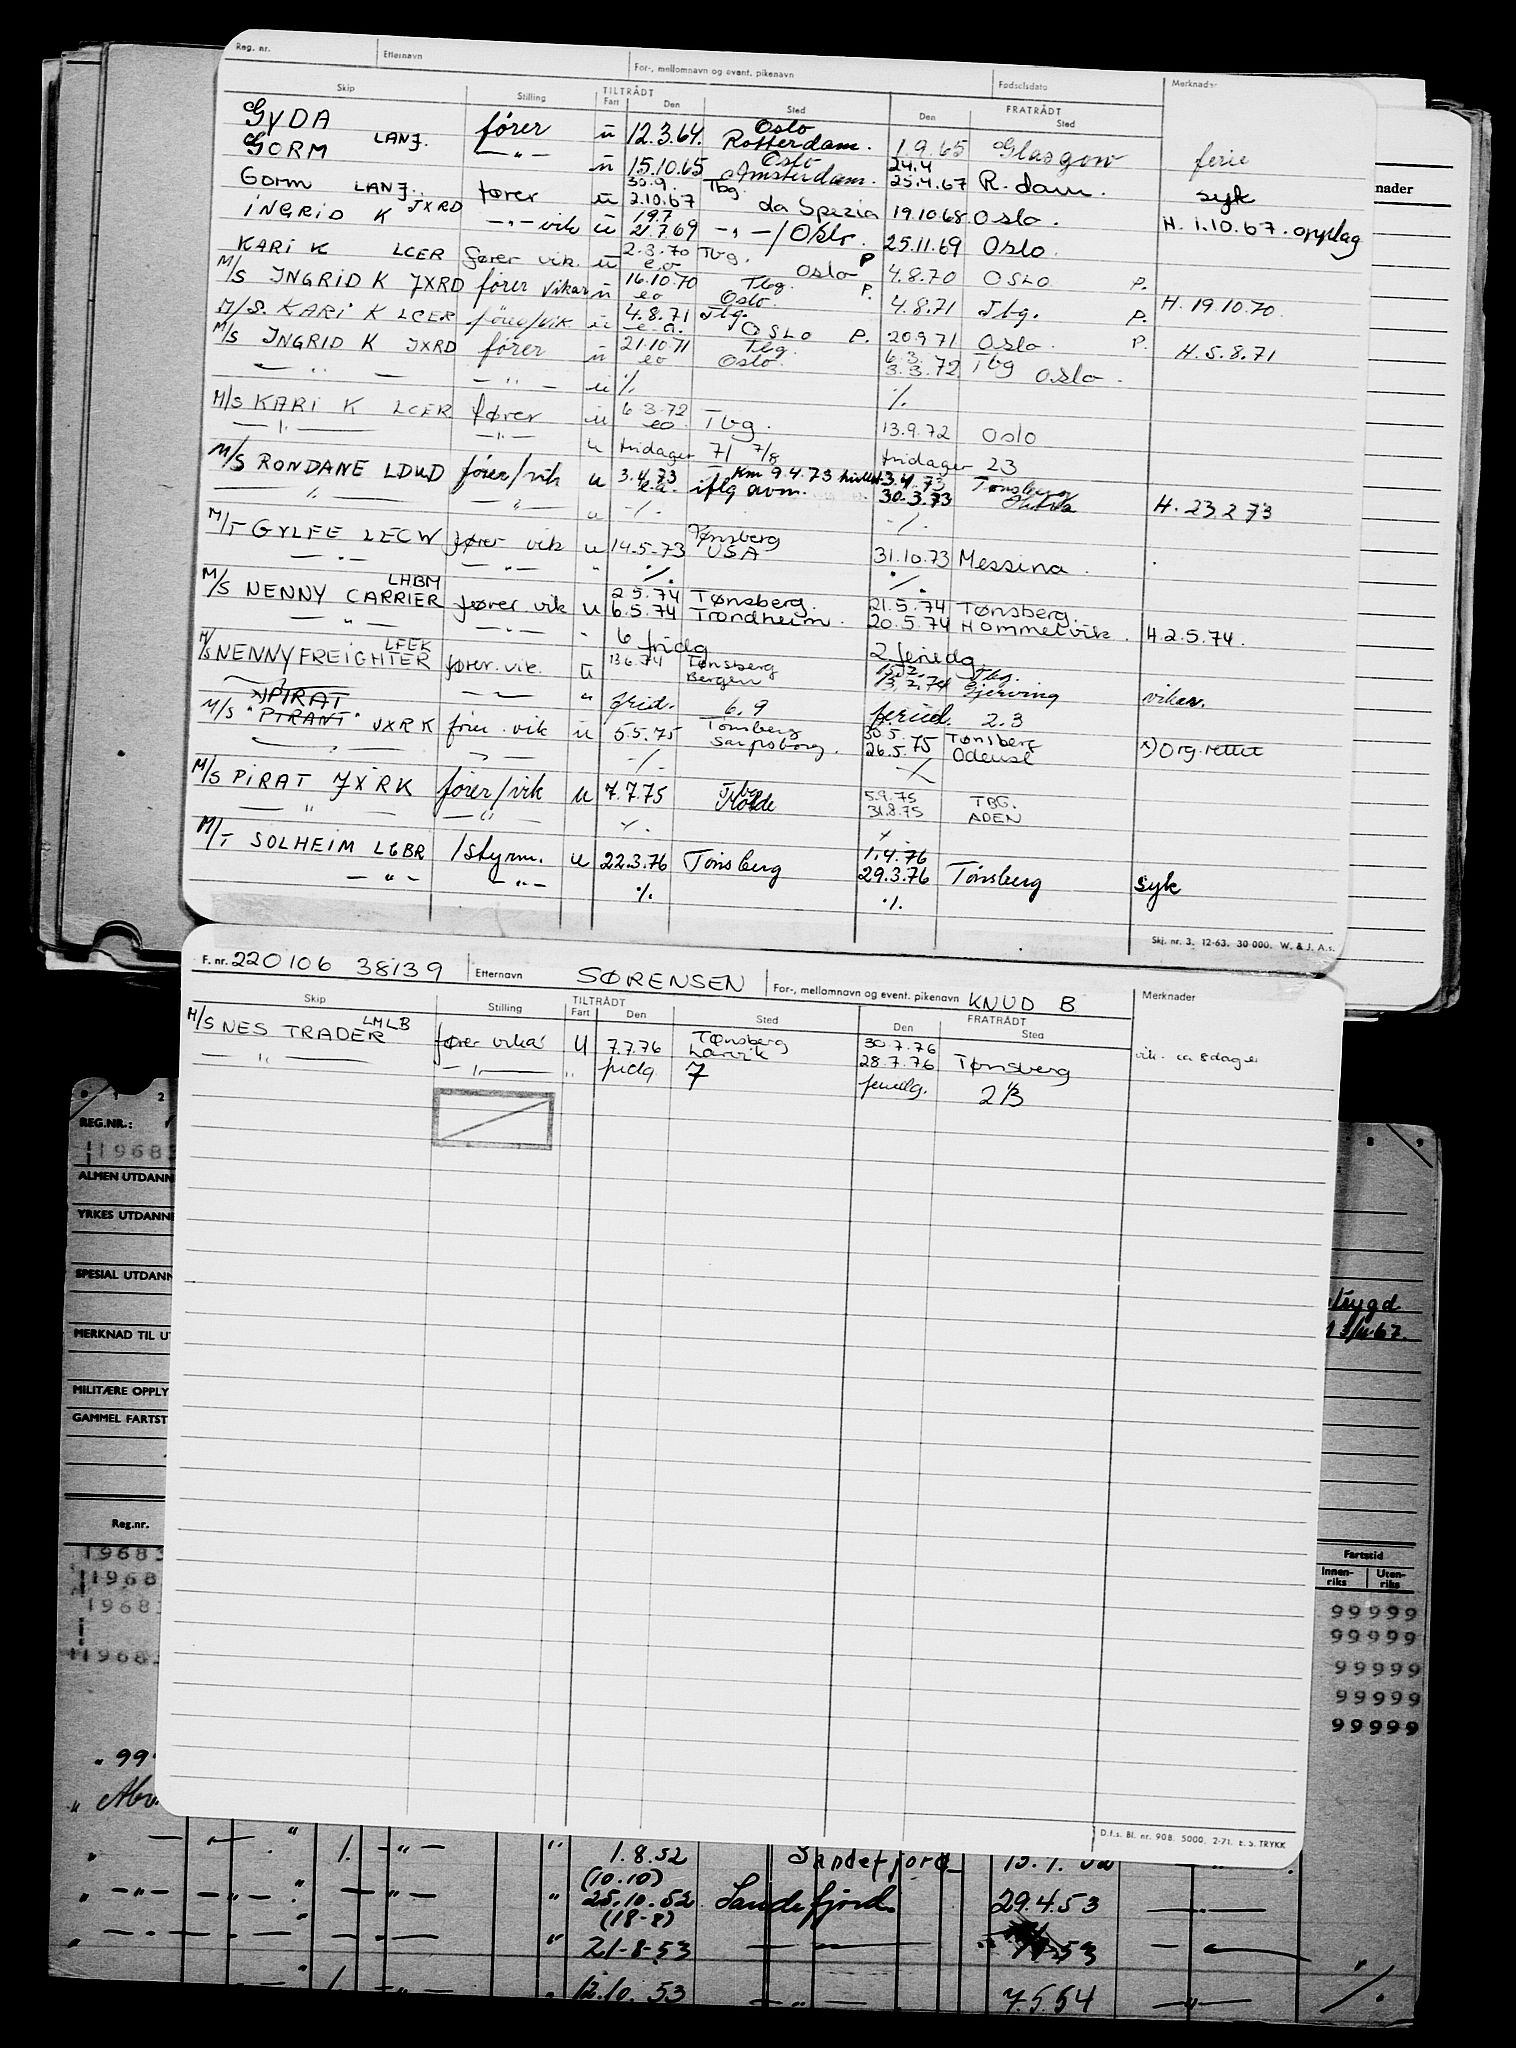 Reg. nr. Etternavn For-, mellomnavn og event. pikenavn Fødselsdato Merknader
Skip Stilling TILTRÅDT Fart Den Sted FRATRÅDT Den Sted
GYDA fører u 12.3.64. Oslo Rotterdam. 1.9.65 Glasgow ferie
GORM LANJ. —"— u 15.10.65 Oslo Amsterdam. 24.4 25.4.67 R.dam. syk
Gorm LANJ. fører u 30.9. 2.10.67 Tbg. da Spezia 19.10.68 Oslo. H. 1.10.67. opplag
INGRID K JXRD —"— vik u 19.7 21.7.69 —"—/Oslo. 25.11.69 Oslo.
KARI K LCER fører vik. u 2.3.70 e.o. Tbg. Oslo P 4.8.70 OSLO P.
M/S INGRID K JXRD fører vikar u 16.10.70 eo Tbg. Oslo. P. 4.8.71 Tbg. P. H. 19.10.70.
M/S. KARI K LCER fører/vik u 4.8.71 e.o. Tbg. OSLO P. 20.9.71 Oslo. P. H. 5.8.71
M/S INGRID K JXRD fører u 21.10.71 eo Tbg. Oslo. 6.3. 3.3.72 Tbg Oslo.
— " — — " — u % %.
M/S KARI K LCER fører u 6.3.72 eo. Tbg. 13.9.72 Oslo
— " — — " — u fridager 71 7/8 fridager 23
M/S RONDANE LDUD fører/vik u 3.4.73 e.o. iflg avm. Km 9.4.73 3.4.73 30.3.73 Tønsberg H. 23.2.73
— " — — " — u -/. -/.
M/T GYLFE LECW fører vik u 14.5.73 Tønsberg USA 31.10.73 Messina.
— " — — " — " %. %.
M/S NENNY CARRIER LHBM fører vik u 2.5.74 6.5.74 Tønsberg. Trondheim. 21.5.74 20.5.74 Tønsberg. Hommelvik. H. 2.5.74.
— " — — " — " 6 fridg 2 feriedg.
M/S NENNY FREIGHTER LFEK fører. vik. u 13.6.74 Tønsberg Bergen Tbg. Gjerving vikar.
— " — — " — " frid. 6.9 feried. 2.3
x) PIRAT
M/S "PIRANT" JXRK fører. vik u 5.5.75 Tønsberg Sarpsborg. 30.5. 26.5.75 Tønsberg Odense x) Org. rettet
— " — — " — -/. -/.
M/S PIRAT JXRK fører/vik u 7.7.75 Tbg Molde 5.9.75 31.8.75 TBG. ADEN
— " — — " — %. %
M/T SOLHEIM LGBR 1styrm. u 22.3.76 Tønsberg 1.4.76 29.3.76 Tønsberg syk
— " — — " — %. %.
Skj. nr. 3. 12-63. 30 000. W. & J. A.s.
nader
F. nr. 220106 38139 Etternavn SØRENSEN For-, mellomnavn og event. pikenavn KNUD B Merknader
Skip Stilling TILTRÅDT Fart Den Sted FRATRÅDT Den Sted
M/S NES TRADER LMLB fører vikar U 7.7.76 Tønsberg Larvik 30.7.76 28.7.76 Tønsberg vik. ca 8 dager
— " — — " — " fridg 7 feriedg. 2 1/3
D.f.s. Bl. nr. 908. 5000. 2-71. E. S. TRYKK
1 2 8 9
REG.NR.:
19683
ALMEN UTDANN
YRKES UTDANNE
SPESIAL UTDANN
MERKNAD TIL U
MILITÆRE OPPLY
GAMMEL FARTST
trygd
Reg.nr. Fartstid
Innen-riks Uten-riks
19683
1968 99999
1968 99999
99999
19683 99999
99999
" 99
1.8.52 Sandefjord
(10.10)
" 25.10.52 Sandefjord 29.4.53
(18-8)
" 21-8-53
12.10.53 7.5.54